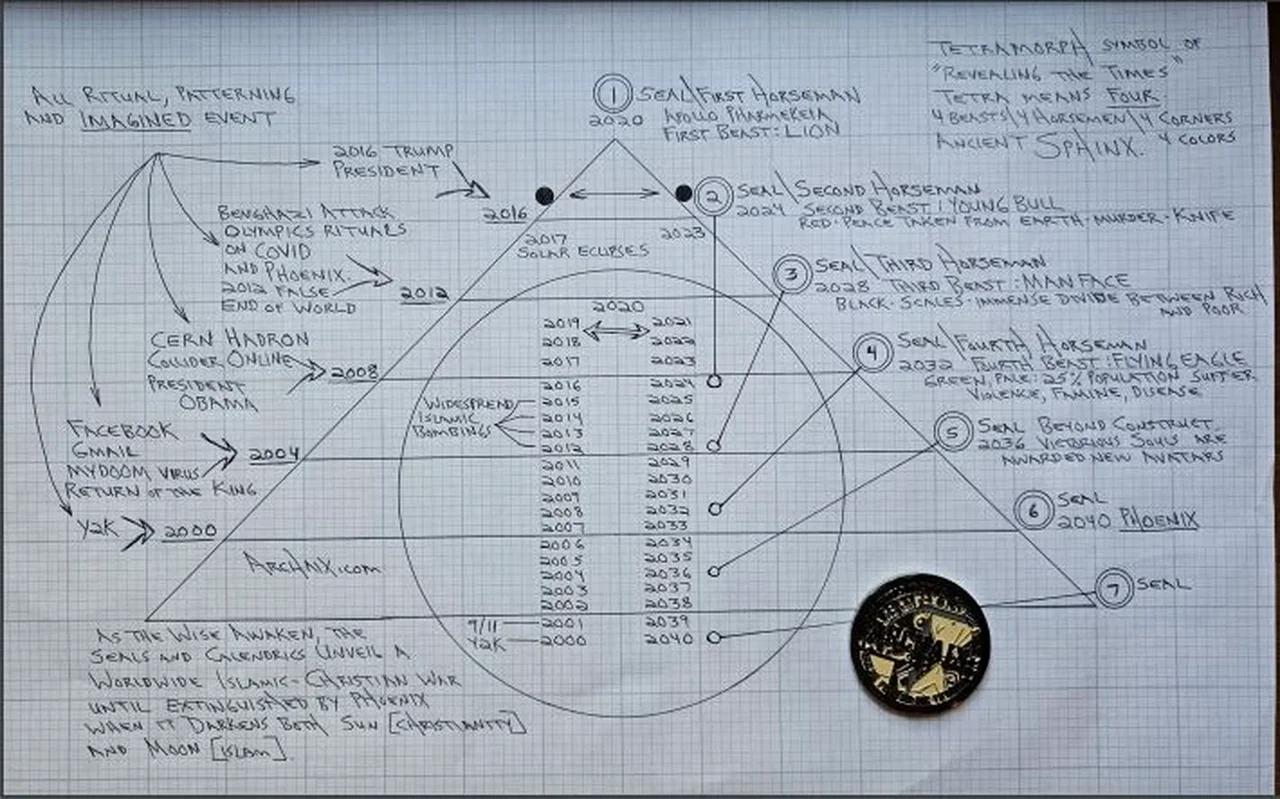 TETRAMORPH SYMBOL OF
"REVEALING THE TIMES"
TETRA MEANS FOUR.
4 BEASTS\4 HORSEMEN\4 CORNERS
ANCIENT SPHINX. 4 COLORS
ALL RITUAL, PATTERNING
AND IMAGINED EVENT
1 SEAL\FIRST HORSEMAN
2020 APOLLO PHARMEKEIA
FIRST BEAST: LION
2016 TRUMP
PRESIDENT
2016
2 SEAL\SECOND HORSEMAN
2024 SECOND BEAST: YOUNG BULL
RED-PEACE TAKEN FROM EARTH-MURDER-KNIFE
2017 2023
SOLAR ECLIPSES
BENGHAZI ATTACK
OLYMPICS RITUALS
ON COVID
AND PHOENIX.
2012 FALSE
END OF WORLD
2012
3 SEAL\THIRD HORSEMAN
2028 THIRD BEAST: MAN FACE
BLACK-SCALES-IMMENSE DIVIDE BETWEEN RICH
AND POOR
CERN HADRON
COLLIDER ONLINE
PRESIDENT
OBAMA
2008
4 SEAL\FOURTH HORSEMAN
2032 FOURTH BEAST: FLYING EAGLE
GREEN, PALE: 25% POPULATION SUFFER
VIOLENCE, FAMINE, DISEASE
FACEBOOK
GMAIL
MYDOOM VIRUS
RETURN OF THE KING
2004
5 SEAL BEYOND CONSTRUCT.
2036 VICTORIOUS SOULS ARE
AWARDED NEW AVATARS
Y2K
2000
6 SEAL
2040 PHOENIX
7 SEAL
ARCHAIX.com
2020
2019 2021
2018 2022
2017 2023
2016 2024
2015 2025
2014 2026
2013 2027
2012 2028
2011 2029
2010 2030
2009 2031
2008 2032
2007 2033
2006 2034
2005 2035
2004 2036
2003 2037
2002 2038
9/11 2001 2039
Y2K 2000 2040
WIDESPREAD
ISLAMIC
BOMBINGS
AS THE WISE AWAKEN, THE
SEALS AND CALENDRICS UNVEIL A
WORLDWIDE ISLAMIC-CHRISTIAN WAR
UNTIL EXTINGUISHED BY PHOENIX
WHEN IT DARKENS BOTH SUN [CHRISTIANITY]
AND MOON [ISLAM].